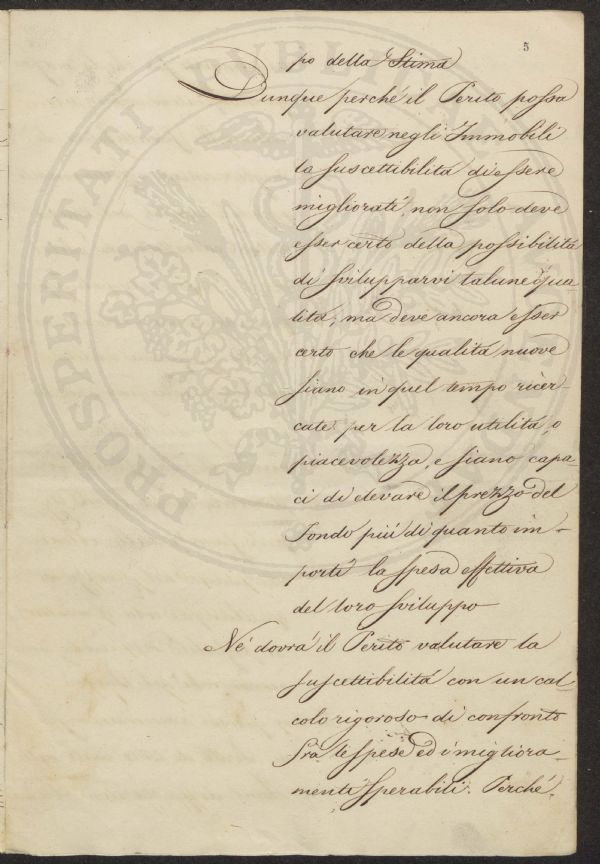 5
po della Stima
Dunque perché il Perito possa
valutare negli Immobili
la suscettibilitá di essere
migliorati, non solo deve
esser certo della possibilitá
di svilupparvi talune qua
litá, ma deve ancora esser
certo che le qualitá nuove
siano in quel tempo ricer-
cate per la loro utilitá, o
piacevolezza, e siano capa-
ci di elevare il prezzo del
Fondo piú di quanto im-
porti la spesa effettiva
del loro sviluppo
Né dovrá il Perito valutare la
suscettibilitá con un cal-
colo rigoroso di confronto
frà le spese ed i migliora-
menti sperabili. Perché
PROSPERITATI PUBLI